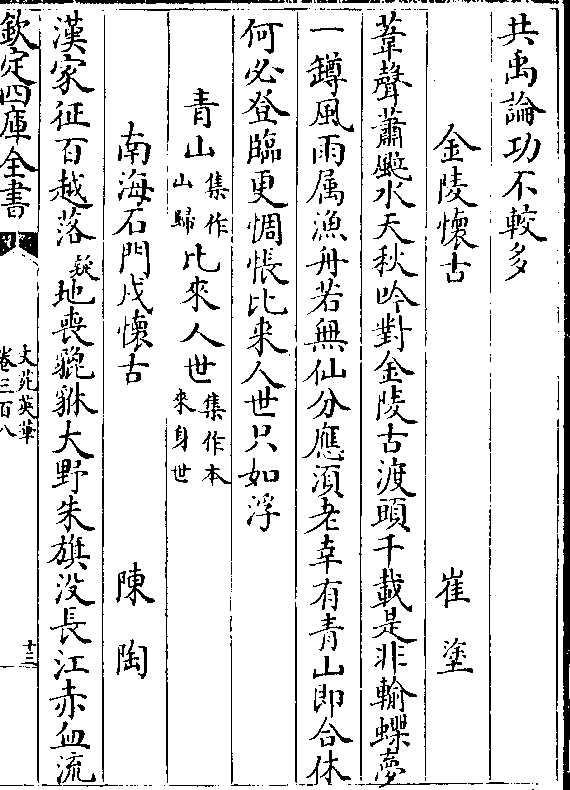 共禹論功不較多
金陵懷古 崔塗
葦聲蕭颼水天秋吟對金陵古渡頭千載是非輸蝶夢
一罇風雨属漁舟若無仙分應湏老幸有青山即合休
何必登臨更惆悵比来人世只如浮
青山集作山歸比來人世集作本來身世
南海石門戍懷古 陳陶
漢家征百越落疑地喪貔貅大野朱旗没長江赤血流
欽定四庫全書
文苑英華
卷三百八
十三